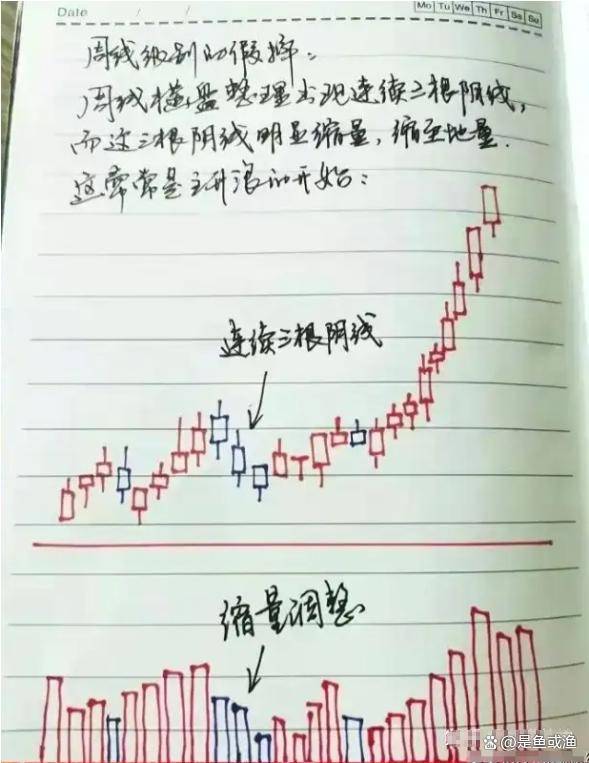 Date / /
Mo Tu We Th Fr Sa Su
周线级别的假摔。
周线横盘整理出现连续三根阴线，
而这三根阴线明显缩量，缩至地量.
这常常是主升浪的开始：
连续三根阴线
缩量调整
@是鱼或渔